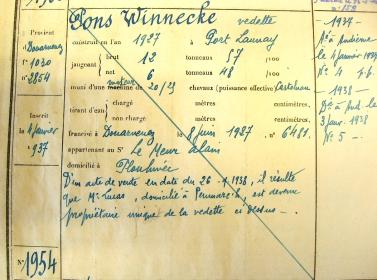 Pons Winnecke vedette
Provient
Douarnenez
n° 1030
n° 2854
Inscrit
le 4 janvier
1937
N°
1954
construit en l'an 1927 à Port Launay
jaugeant brut 12 tonneaux 57 /100
net 6 tonneaux 48 /100
muni d'une machine de 20/25 chevaux (puissance effective)
moteur
tirant d'eau chargé mètres centimètres.
non chargé mètres centimètres.
francisé à Douarnenez le 8 juin 1927 n° 6481.
appartenant au Sr Le Meur Alain
domicilié à Plouhinec
D'un acte de vente en date du 26 1938, il résulte
que Mr , domicilié à Penmarc'h, est devenu
propriétaire unique de la vedette ci dessus -.
- 1937 -
Bce à Audierne
le 4 janvier
N° 4
- 1938 -
Bce à Aud. le
3 janv. 1938
N° 5 -